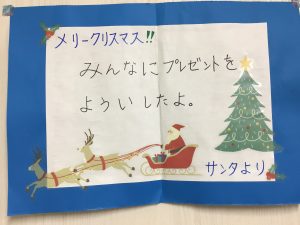 メリークリスマス!!
みんなにプレゼントを
よういしたよ。
サンタより